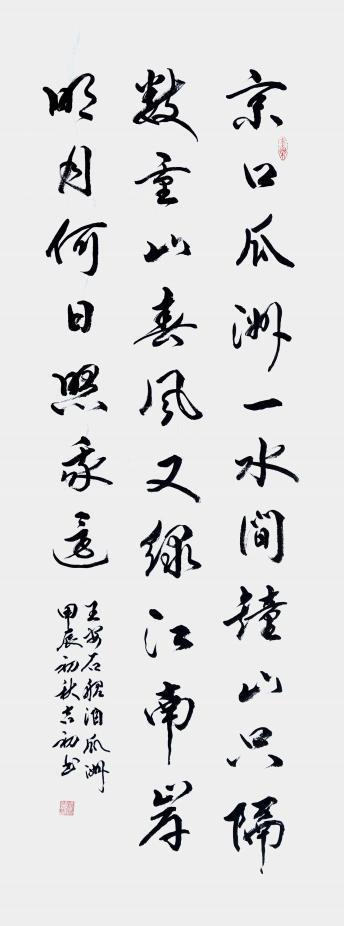 京口瓜洲一水间钟山只隔
数重山春风又绿江南岸
明月何日照我还
王安石船泊瓜洲
甲辰初秋吉初书